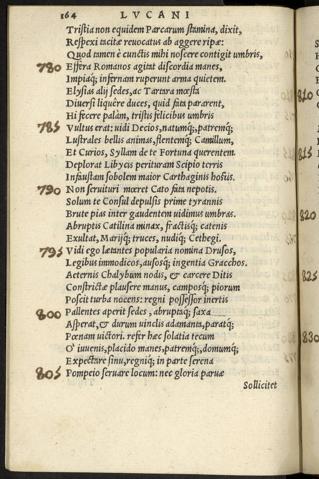 164 LVCANI
Tristia non equidem Parcarum stamina, dixit,
Respexi tacitæ reuocatus ab aggere ripæ:
Quod tamen è cunctis mihi noscere contigit umbris,
780 Effera Romanos agitat discordia manes,
Impiaq; infernam ruperunt arma quietem.
Elysias alij sedes, ac Tartara mœsta
Diuersi liquêre duces, quid fata pararent,
Hi fecere palàm, tristis felicibus umbris
785 Vultus erat: uidi Decios, natumq;, patremq;
Lustrales bellis animas, flentemq; Camillum,
Et Curios, Syllam de te Fortuna querentem.
Deplorat Libycis perituram Scipio terris
Infaustam sobolem maior Carthaginis hostis.
790 Non seruituri mœret Cato fata nepotis.
Solum te Consul depulsis prime tyrannis
Brute pias inter gaudentem uidimus umbras.
Abruptis Catilina minax, fractisq; catenis
Exultat, Marijq; truces, nudiq; Cethegi.
795 Vidi ego lætantes popularia nomina Drusos,
Legibus immodicos, ausosq; ingentia Gracchos.
Aeternis Chalybum nodis, & carcere Ditis
Constrictæ plausere manus, camposq; piorum
Poscit turba nocens: regni possessor inertis
800 Pallentes aperit sedes, abruptaq; saxa
Asperat, & durum uinclis adamanta, paratq;
Pœnam uictori. refer hæc solatia tecum
O' iuuenis, placido manes, patremq;, domumq;
Expectare sinu, regniq; in parte serena
805 Pompeio seruare locum: nec gloria paruæ
Sollicitet
810
815
820
825
830